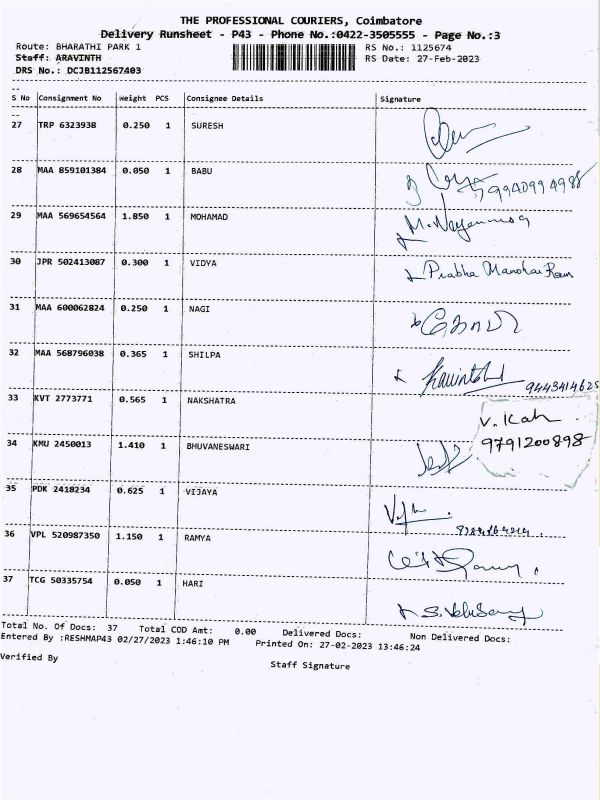 THE PROFESSIONAL COURIERS, Coimbatore
Delivery Runsheet - P43 - Phone No.:0422-3505555 - Page No.:3
Route: BHARATHI PARK 1 RS No.: 1125674
Staff: ARAVINTH RS Date: 27-Feb-2023
DRS No.: DCJB112567403
S No Consignment No Weight PCS Consignee Details Signature
27 TRP 6323938 0.250 1 SURESH
28 MAA 859101384 0.050 1 BABU
9940994988
29 MAA 569654564 1.850 1 MOHAMAD
30 JPR 502413087 0.300 1 VIDYA
Prabha Manohar Ram
31 MAA 600062824 0.250 1 NAGI
32 MAA 568796038 0.365 1 SHILPA
9443414625
33 KVT 2773771 0.565 1 NAKSHATRA
V.
9791200898
34 KMU 2450013 1.410 1 BHUVANESWARI
35 PDK 2418234 0.625 1 VIJAYA
36 VPL 520987350 1.150 1 RAMYA
37 TCG 50335754 0.050 1 HARI
Total No. Of Docs: 37 Total COD Amt: 0.00 Delivered Docs: Non Delivered Docs:
Entered By :RESHMAP43 02/27/2023 1:46:10 PM Printed On: 27-02-2023 13:46:24
Verified By Staff Signature